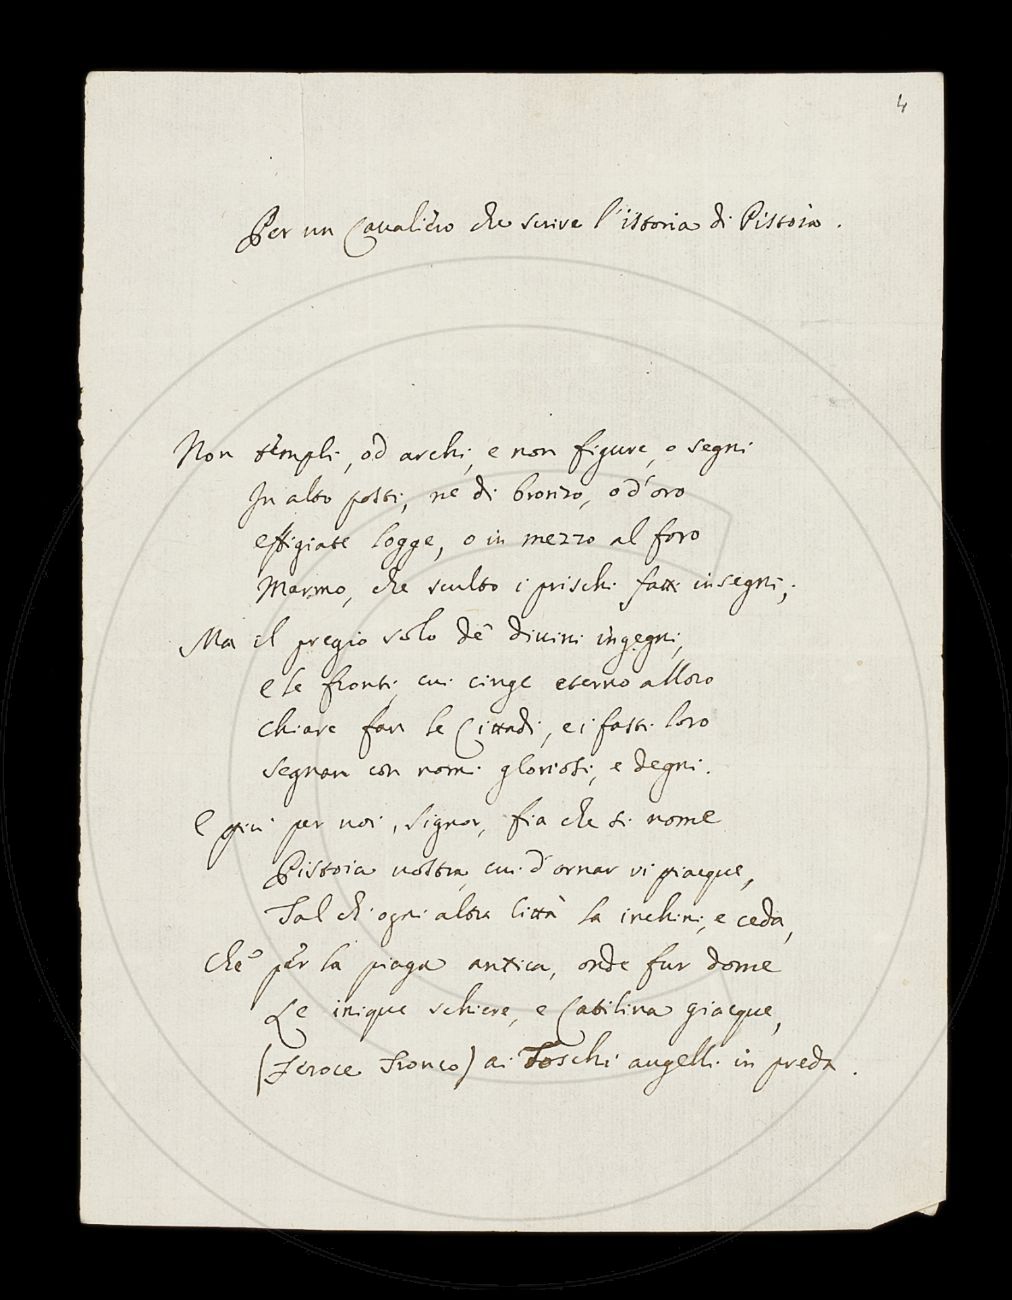 4
Per un Cavaliero che scrive l'istoria di Pistoia.
Non templi, od archi, e non figure, o segni
In alto posti, nè di bronzo, o d'oro
effigiate logge, o in mezzo al foro
Marmo, che sculto i prischi fatti insegni;
Ma il pregio solo de' divini ingegni,
e le fronti, cui cinge eterno alloro
chiare fan le Cittadi, e i fasti loro
segnan con nomi gloriosi, e degni.
e più per voi, signor, fia che si nome
Pistoia vostra, cui d'ornar vi piacque,
Tal ch'ogni altra Città la inchini, e ceda,
Che per la piaga antica, onde fur dome
Le inique schiere, e Catilina giacque,
(Feroce Tronco) ai Toschi augelli in preda.